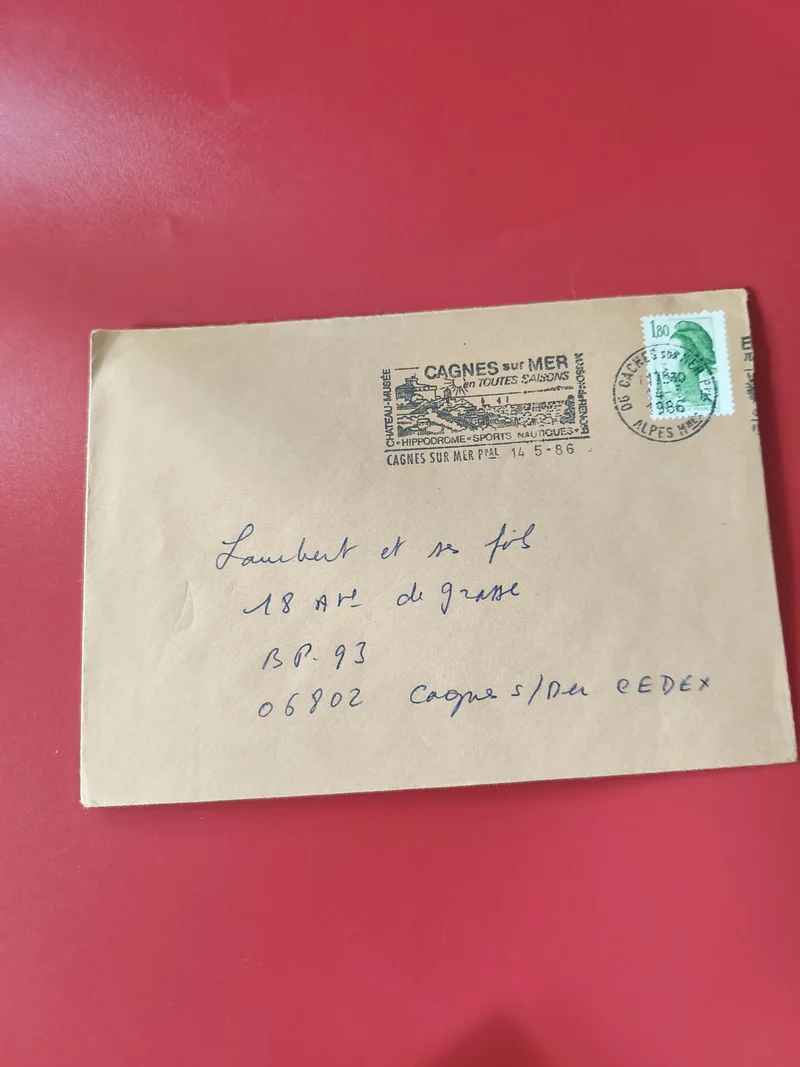 CAGNES sur MER
en TOUTES SAISONS
CHATEAU-MUSÉE
MAISON de RENOIR
HIPPODROME • SPORTS NAUTIQUES
CAGNES SUR MER PPAL 14 5-86
1,80
06 CAGNES SUR MER PPAL
1986
ALPES Mmes
Lambert et ses fils
18 Ave de grasse
BP. 93
06802 Cagnes s/Mer CEDEX